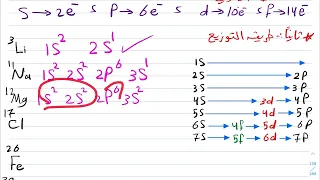 S → 2e⁻ s P → 6e⁻ s d → 10e⁻ s f → 14e⁻
* ثانياً: طريقة التوزيع
³Li 1S² 2S¹ ✓
¹¹Na 1S² 2S² 2P⁶ 3S¹
¹²Mg 1S² 2S² 2P⁶ 3S²
¹⁷Cl
²⁶Fe
1S
2S → 2P
3S → 3P
4S → 3d → 4P
5S → 4d → 5P
6S → 4f → 5d → 6P
7S → 5f → 6d → 7P